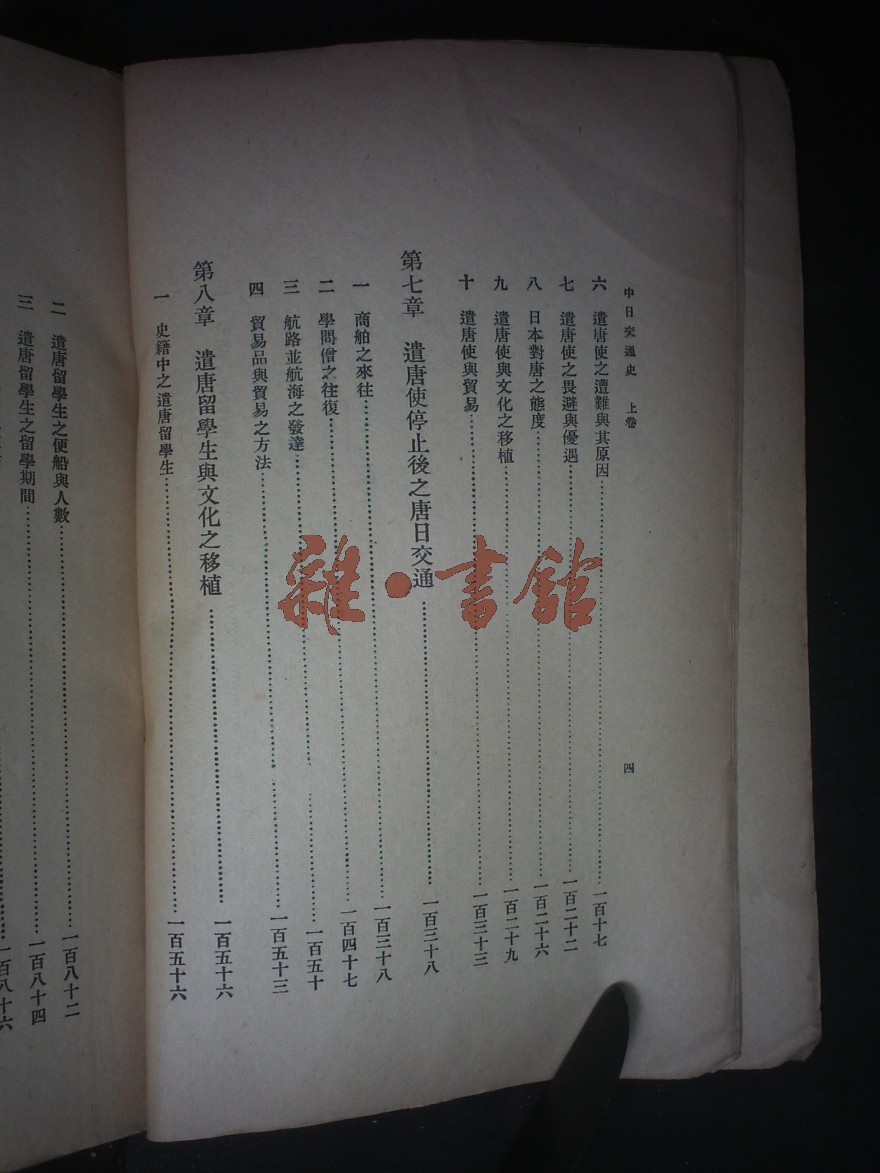 中日交通史　上卷　四
六　遣唐使之遭難與其原因……一百十七
七　遣唐使之畏避與優遇……一百二十二
八　日本對唐之態度……一百二十六
九　遣唐使與文化之移植……一百二十九
十　遣唐使與貿易……一百三十三
第七章　遣唐使停止後之唐日交通……一百三十八
一　商舶之來往……一百三十八
二　學問僧之往復……一百四十七
三　航路並航海之發達……一百五十
四　貿易品與貿易之方法……一百五十三
第八章　遣唐留學生與文化之移植……一百五十六
一　史籍中之遣唐留學生……一百五十六
二　遣唐留學生之便船與人數……一百八十二
三　遣唐留學生之留學期間……一百八十四
一百八十六
雜·書館